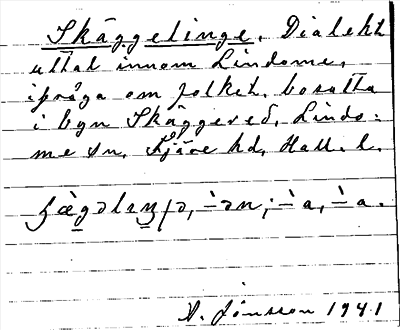 Skäggelinge. Dialekt
uttal innom Lindome,
ifråga om folket, bosatta
i byn Skäggered, Lindo:
me sn, Fjäre hd, Hall. l.
A. Jönsson 1941